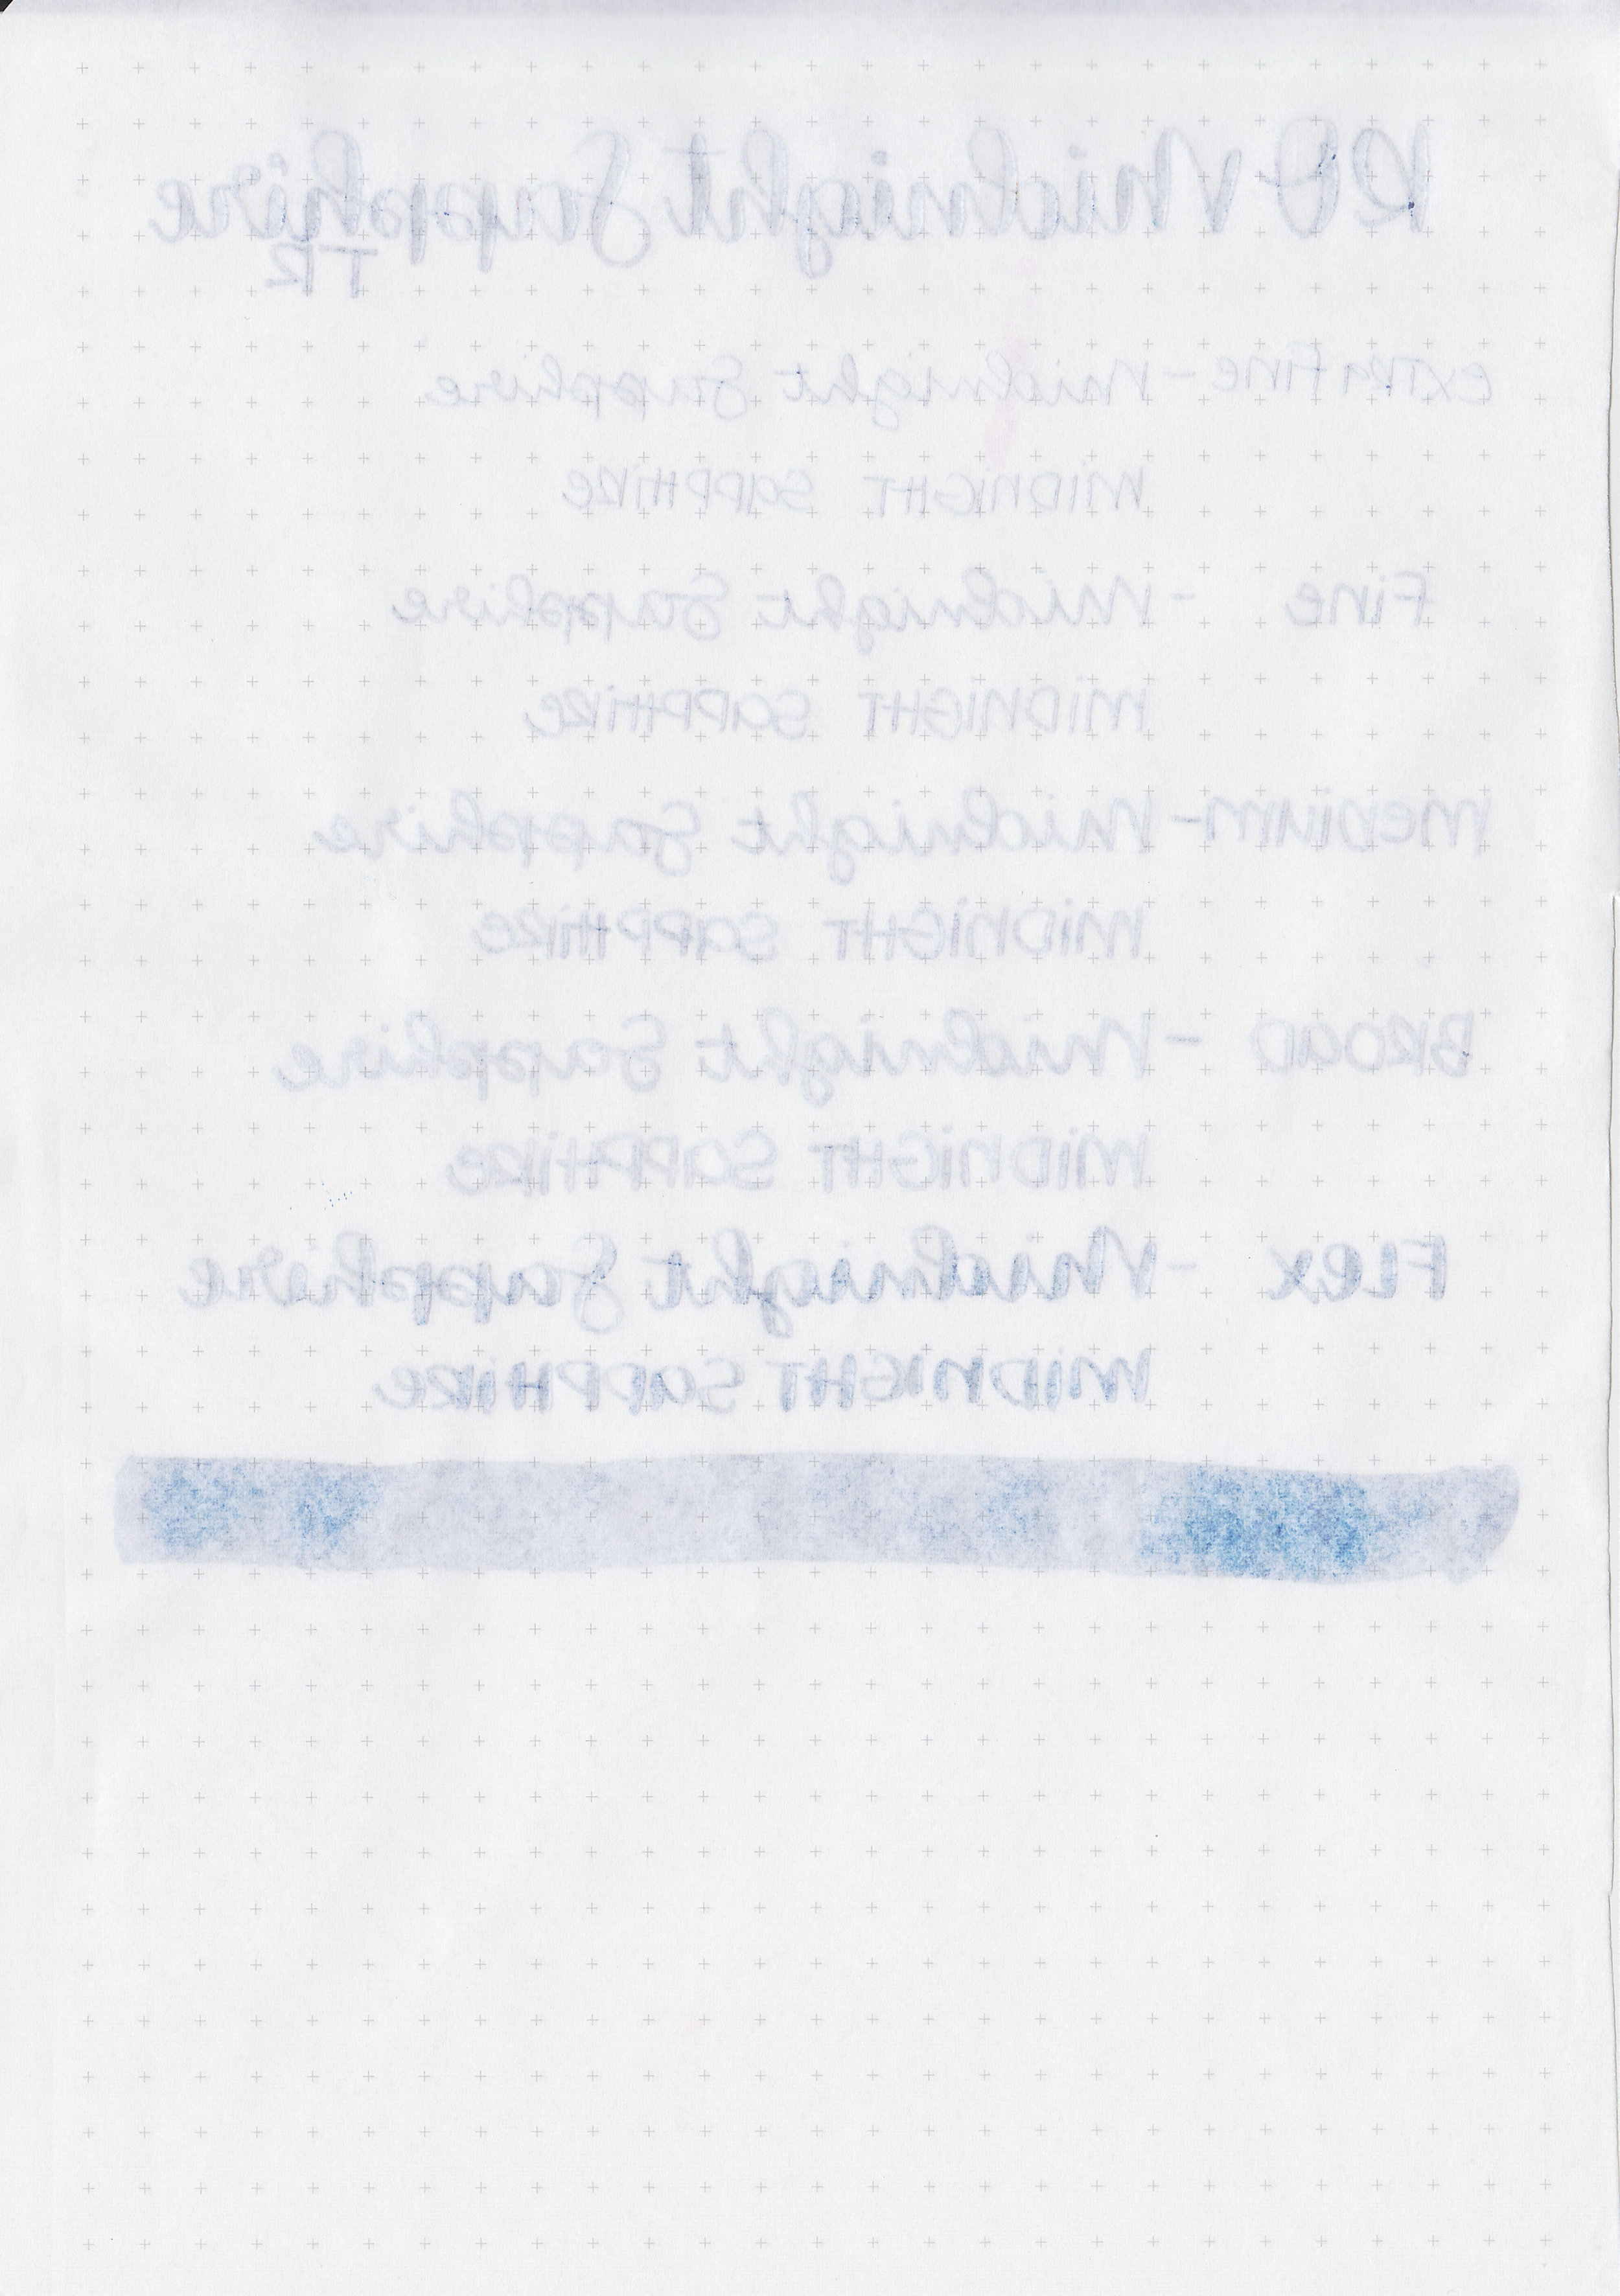 RO Midnight Sapphire
TR
extra Fine - Midnight Sapphire
MiDNiGHT SaPPHiRe
Fine - Midnight Sapphire
MiDNiGHT SaPPHiRe
MeDiUM - Midnight Sapphire
MiDNiGHT SaPPHiRe
BROaD - Midnight Sapphire
MiDNiGHT SaPPHiRe
FLex - Midnight Sapphire
MiDNiGHT SaPPHiRe